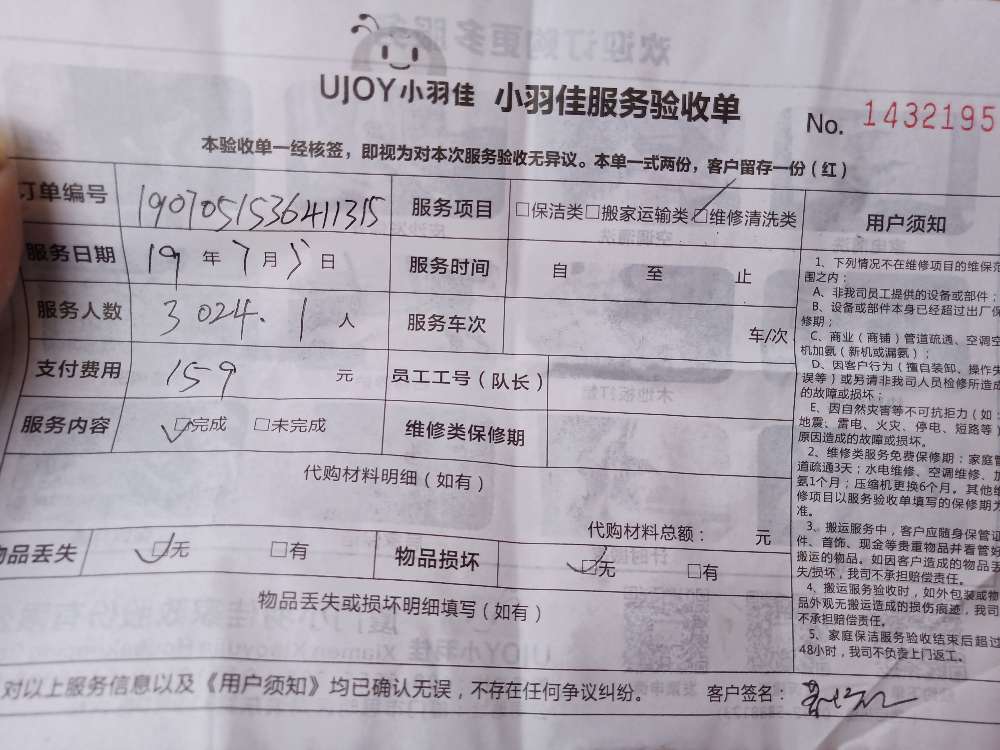 UJOY小羽佳 小羽佳服务验收单
No. 1432195
本验收单一经核签，即视为对本次服务验收无异议。本单一式两份，客户留存一份（红）
订单编号 1907051536411315 服务项目 □保洁类□搬家运输类□维修清洗类
服务日期 19 年 7 月 5 日 服务时间 自 至 止
服务人数 3024. 1 人 服务车次 车/次
支付费用 159 元 员工工号（队长）
服务内容 □完成 □未完成 维修类保修期
代购材料明细（如有）
代购材料总额： 元
物品丢失 □无 □有 物品损坏 □无 □有
物品丢失或损坏明细填写（如有）
对以上服务信息以及《用户须知》均已确认无误，不存在任何争议纠纷。 客户签名：
用户须知
1、下列情况不在维修项目的维保范
围之内：
A、非我司员工提供的设备或部件；
B、设备或部件本身已经超过出厂保
修期；
C、商业（商铺）管道疏通、空调空
机加氨（新机或漏氨）；
D、因客户行为（擅自装卸、操作失
误等）或另请非我司人员检修所造成
的故障或损坏；
E、因自然灾害等不可抗拒力（如：
地震、雷电、火灾、停电、短路等）
原因造成的故障或损坏。
2、维修类服务免费保修期：家庭管
道疏通3天；水电维修、空调维修、加
氨1个月；压缩机更换6个月。其他维
修项目以服务验收单填写的保修期为
准。
3、搬运服务中，客户应随身保管证
件、首饰、现金等贵重物品并看管好
搬运的物品。如因客户造成的物品丢
失/损坏，我司不承担赔偿责任。
4、搬运服务验收时，如外包装或物
品外观无搬运造成的损伤痕迹，我司
不承担赔偿责任。
5、家庭保洁服务验收结束后超过
48小时，我司不负责上门返工。